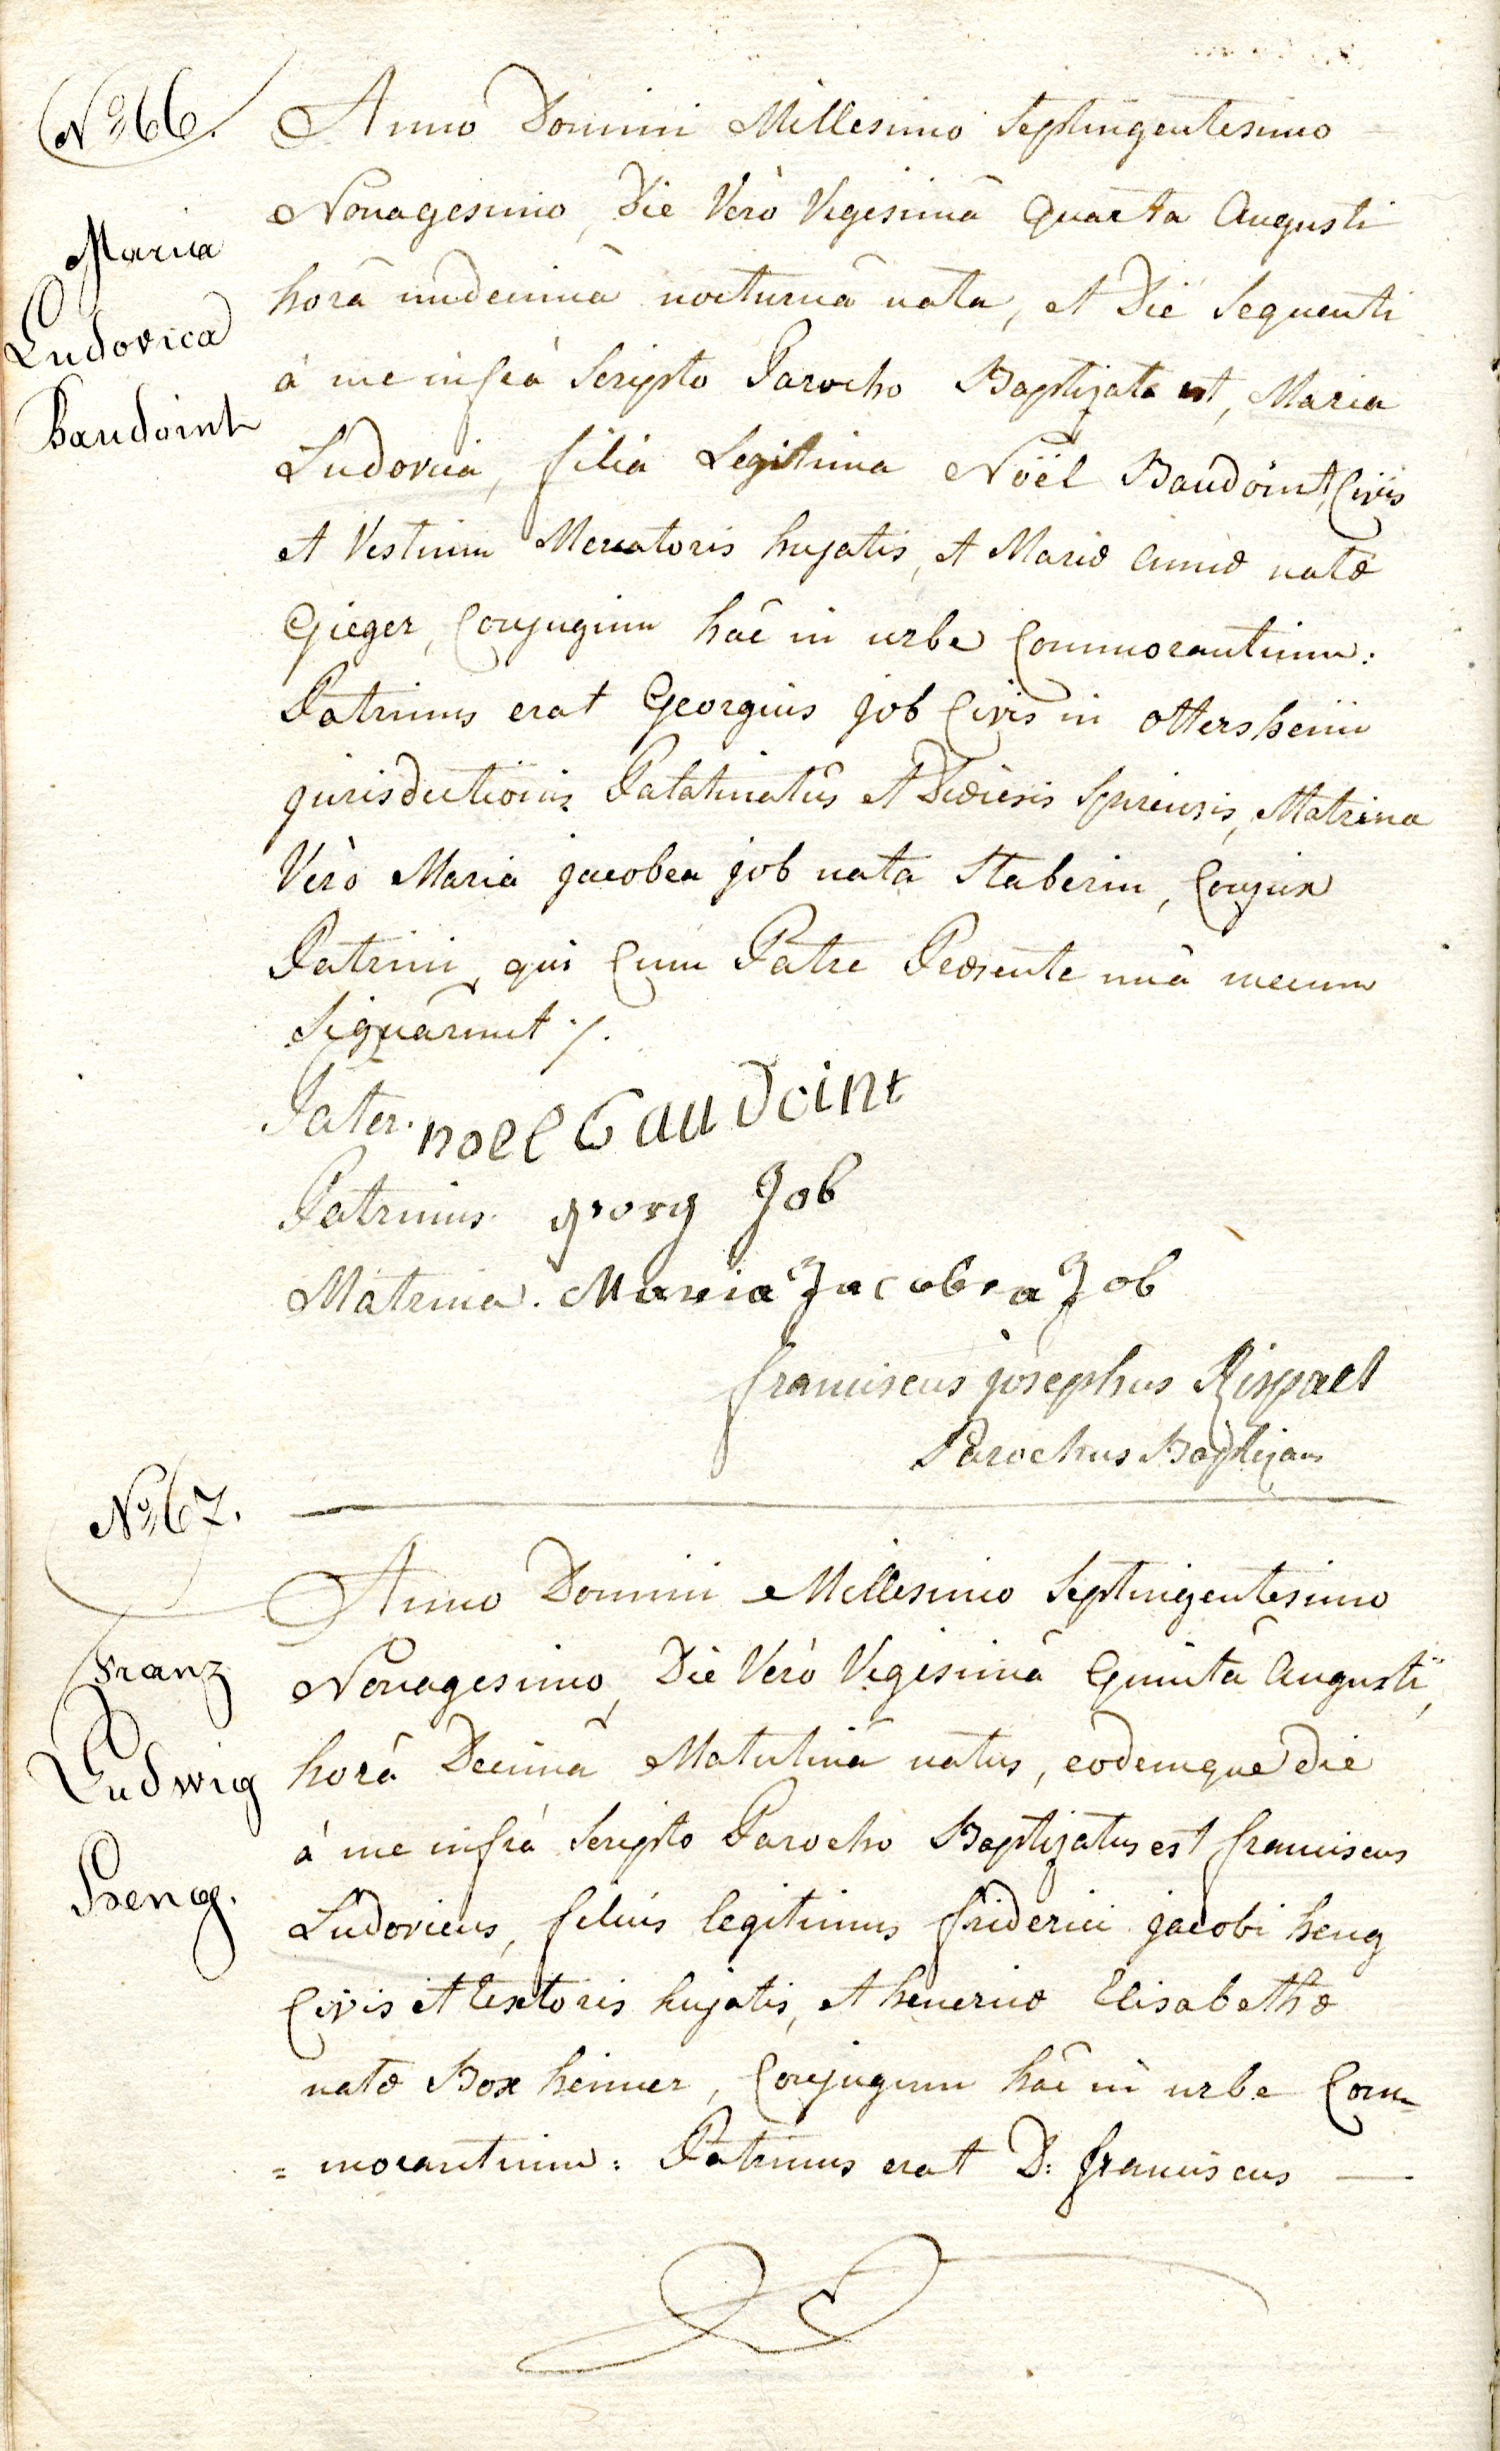 No 66.
Maria
Ludovica
Baudoint
Anno Domini Millesimo Septingentesimo
Nonagesimo, Die Verò Vigesimâ Quarta Augusti
horâ undecimâ nocturnâ nata, et Die Sequenti
à me infrà Scripto Parocho Baptizata est, Maria
Ludovica, filia Legitima Noël Baudoint, Civis
et Vestium Mercatoris hujatis, et Mariæ Annæ natæ
Gieger, Conjugum hâc in urbe Commorantium:
Patrinus erat Georgius Job Civis in Ottersheim
jurisdictionis Palatinatûs et Diœcesis Spirensis, Matrina
Verò Maria jacobea job nata Staberin, Conjux
Patrini, qui Cum Patre Præsente unà mecum
Signârunt ./.
Pater. noel Baudoint
Patrinus. georg Job
Matrina. Maria Jacobea Job
franciscus josephus Rispael
Parochus Baptizans
No 67.
Franz
Ludwig
Heng.
Anno Domini Millesimo Septingentesimo
Nonagesimo, Die Verò Vigesimâ Quintâ Augusti,
horâ Decimâ Matutinâ natus, eodemque die
à me infrà Scripto Parocho Baptizatus est, franciscus
Ludovicus, filius legitimus friderici jacobi heng
Civis et textoris hujatis, et henericæ Elisabethæ
natæ Boxheimer, Conjugum hâc in urbe Com=
=morantium: Patrinus erat D: franciscus —